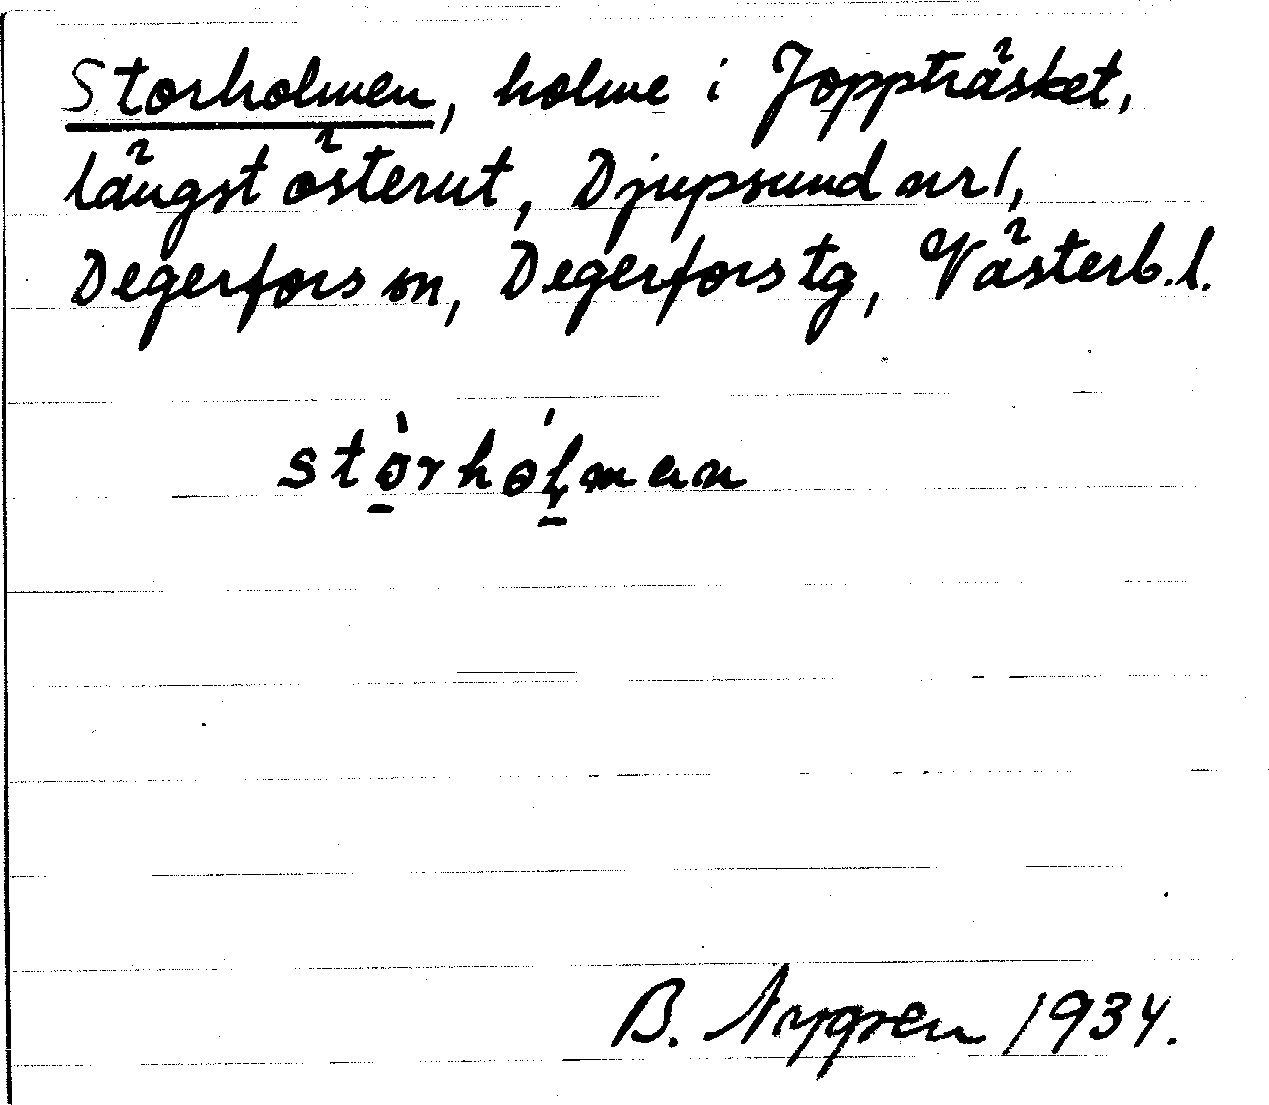 Storholmen, holme i Joppträsket,
längst österut, Djupsund nr 1,
Degerfors sn, Degerfors tg, Västerb. l.
stòrhólman
B. Nygren 1934.